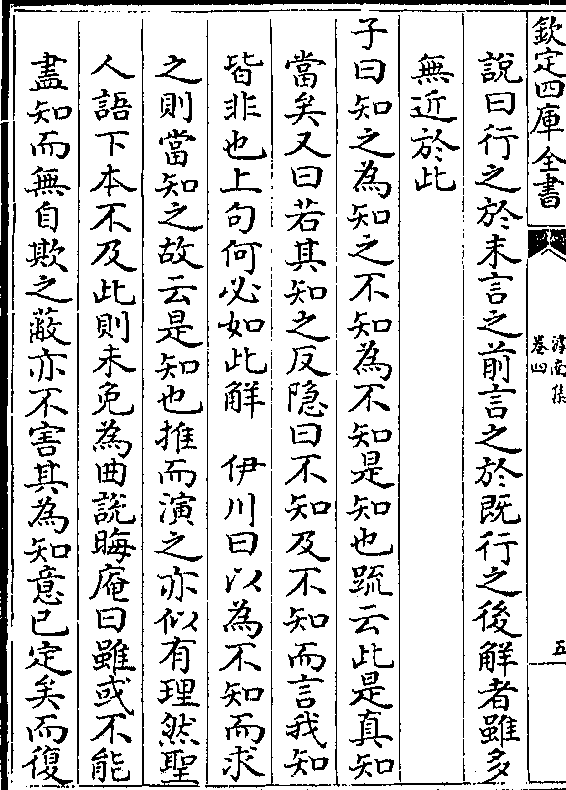 欽定四庫全書
滹南集
卷四
五
說曰行之於未言之前言之於既行之後解者雖多
無近於此
子曰知之為知之不知為不知是知也䟽云此是真知
當矣又曰若其知之反隐曰不知及不知而言我知
皆非也上句何必如此解　伊川曰以為不知而求
之則當知之故云是知也推而演之亦似有理然聖
人語下本不及此則未免為曲說晦庵曰雖或不能
盡知而無自欺之蔽亦不害其為知意已定矣而復